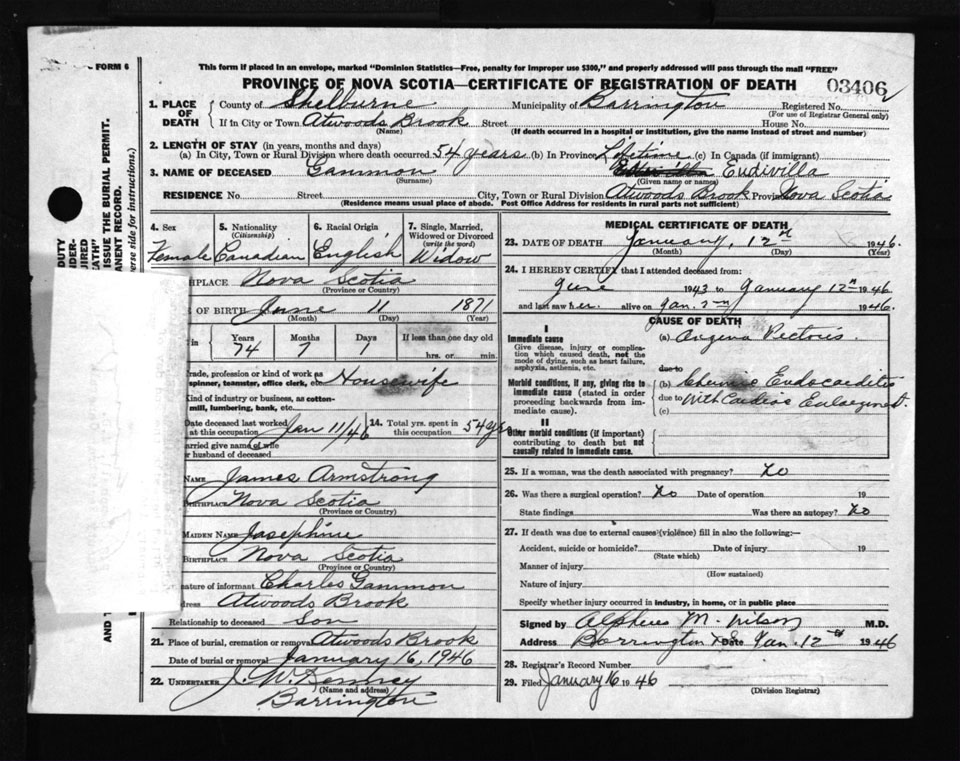 FORM 6
This form if placed in an envelope, marked "Dominion Statistics—Free, penalty for improper use $300," and properly addressed will pass through the mail "FREE"
PROVINCE OF NOVA SCOTIA—CERTIFICATE OF REGISTRATION OF DEATH 03406
1. PLACE OF DEATH County of Shelburne Municipality of Barrington Registered No.
(For use of Registrar General only)
If in City or Town Atwoods Brook Street House No.
(Name) (If death occurred in a hospital or institution, give the name instead of street and number)
2. LENGTH OF STAY (in years, months and days)
(a) In City, Town or Rural Division where death occurred 54 years (b) In Province Lifetime (c) In Canada (if immigrant)
3. NAME OF DECEASED Gammon Eudivilla
(Surname) (Given name or names)
RESIDENCE No. Street City, Town or Rural Division Atwoods Brook Province Nova Scotia
(Residence means usual place of abode. Post Office Address for residents in rural parts not sufficient)
4. Sex 5. Nationality (Citizenship) 6. Racial Origin 7. Single, Married, Widowed or Divorced (write the word)
Female Canadian English Widow
PLACE Nova Scotia
(Province or Country)
OF BIRTH June 11 1871
(Month) (Day) (Year)
in Years Months Days If less than one day old
74 7 1 hrs. or min.
Trade, profession or kind of work as spinner, teamster, office clerk, etc. Housewife
Kind of industry or business, as cotton-mill, lumbering, bank, etc.
Date deceased last worked at this occupation Jan 11/46 14. Total yrs. spent in this occupation 54 yrs
married give name of wife or husband of deceased
NAME James Armstrong
BIRTHPLACE Nova Scotia
(Province or Country)
MAIDEN NAME Josephine
BIRTHPLACE Nova Scotia
(Province or Country)
Signature of informant Charles Gammon
Address Atwoods Brook
Relationship to deceased Son
21. Place of burial, cremation or removal Atwoods Brook
Date of burial or removal January 16, 1946
22. UNDERTAKER J. W.
(Name and address)
Barrington
MEDICAL CERTIFICATE OF DEATH
23. DATE OF DEATH January, 12th 1946.
(Month) (Day)
24. I HEREBY CERTIFY that I attended deceased from:
June 1943 to January 12th 1946
and last saw her alive on Jan. 1946.
CAUSE OF DEATH
I
Immediate cause (a) Angina Pectoris.
Give disease, injury or complication which caused death, not the mode of dying, such as heart failure, asphyxia, asthenia, etc.
due to
Morbid conditions, if any, giving rise to immediate cause (stated in order proceeding backwards from immediate cause). (b) Chronic Endocarditis
due to With Cardiac Enlargement.
(c)
II
Other morbid conditions (if important) contributing to death but not causally related to immediate cause.
25. If a woman, was the death associated with pregnancy? No
26. Was there a surgical operation? No Date of operation 19
State findings Was there an autopsy? No
27. If death was due to external causes (violence) fill in also the following:—
Accident, suicide or homicide? Date of injury 19
(State which)
Manner of injury
(How sustained)
Nature of injury
Specify whether injury occurred in industry, in home, or in public place
Signed by Alpheus M. Wilson M.D.
Address Barrington Date Jan. 12th 1946
28. Registrar's Record Number
29. Filed January 16 1946
(Division Registrar)
ISSUE THE BURIAL PERMIT.